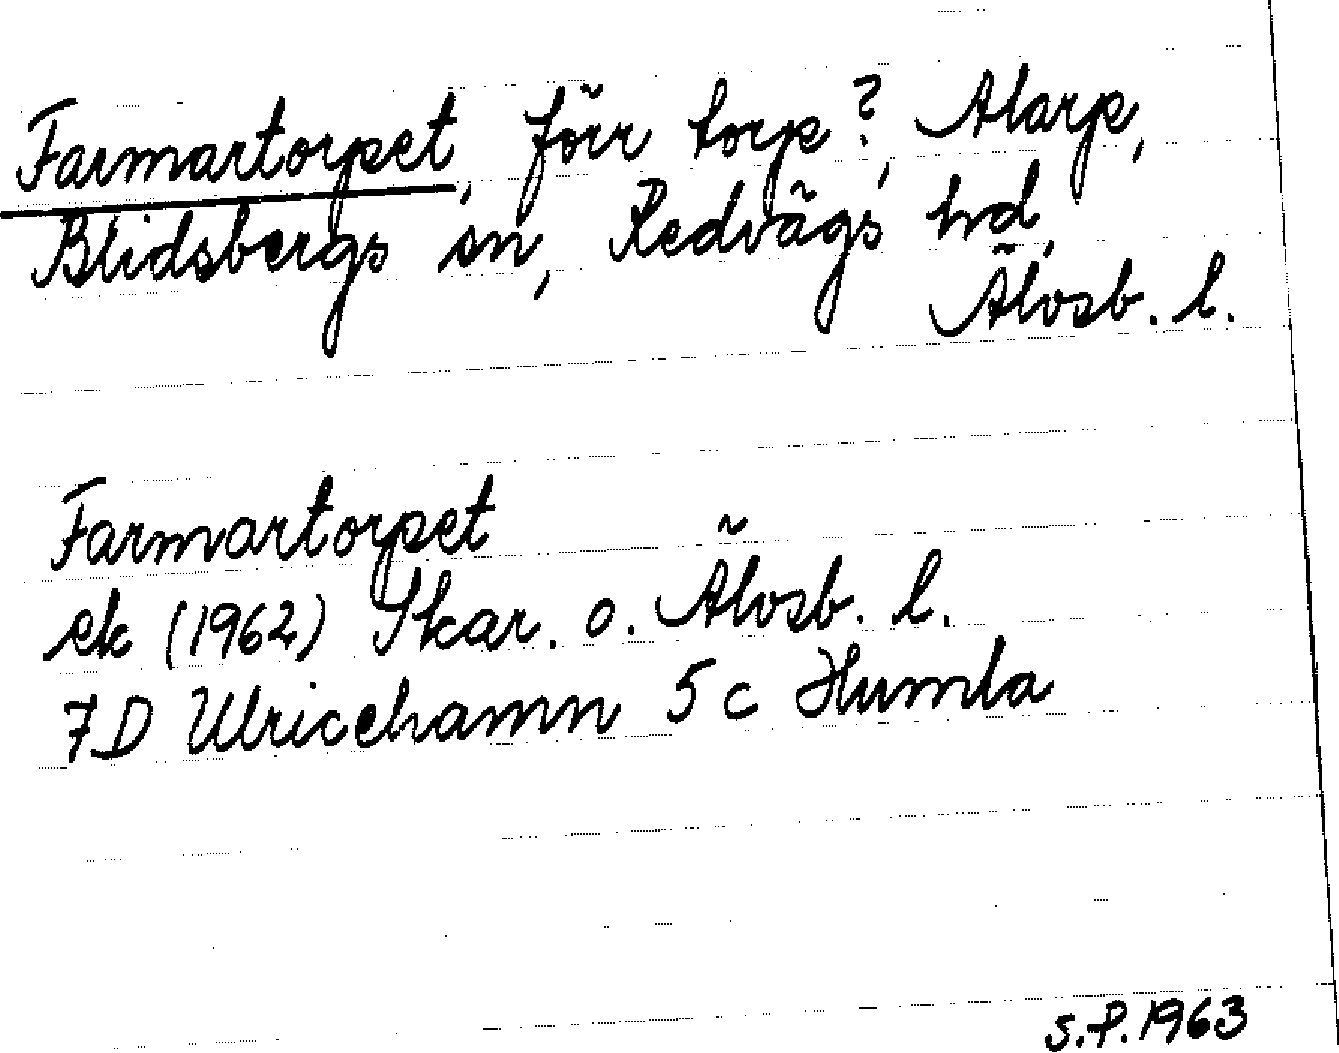 Farmartorpet, förr torp?, Alarp,
Blidsbergs sn, Redvägs hd,
Älvsb. l.
Farmartorpet
ek (1962) Skar. o. Älvsb. l.
7D Ulricehamn 5 c Humla
S.P. 1963